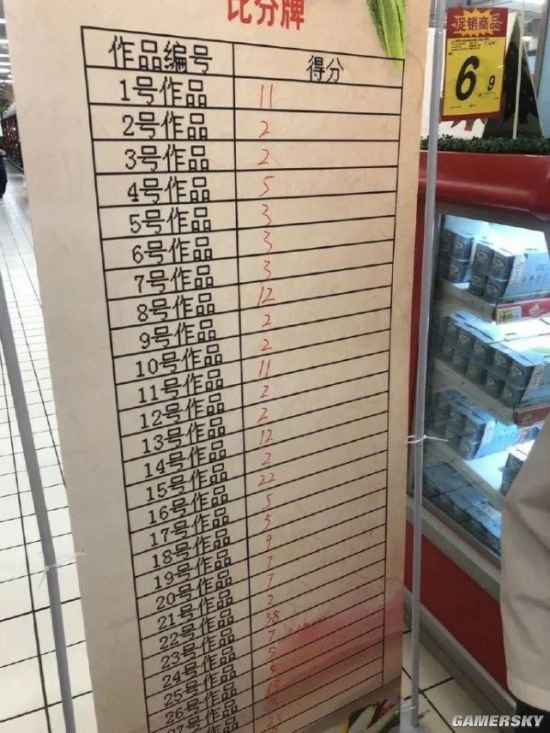 比分牌
作品编号 得分
1号作品 11
2号作品 2
3号作品 2
4号作品 5
5号作品 3
6号作品 3
7号作品 3
8号作品 12
9号作品 2
10号作品 2
11号作品 11
12号作品 2
13号作品 2
14号作品 12
15号作品 2
16号作品 22
17号作品 5
18号作品 5
19号作品 9
20号作品 7
21号作品 7
22号作品 2
23号作品 38
24号作品 7
25号作品 5
26号作品
27号作品
促销商品
6.9
GAMERSKY